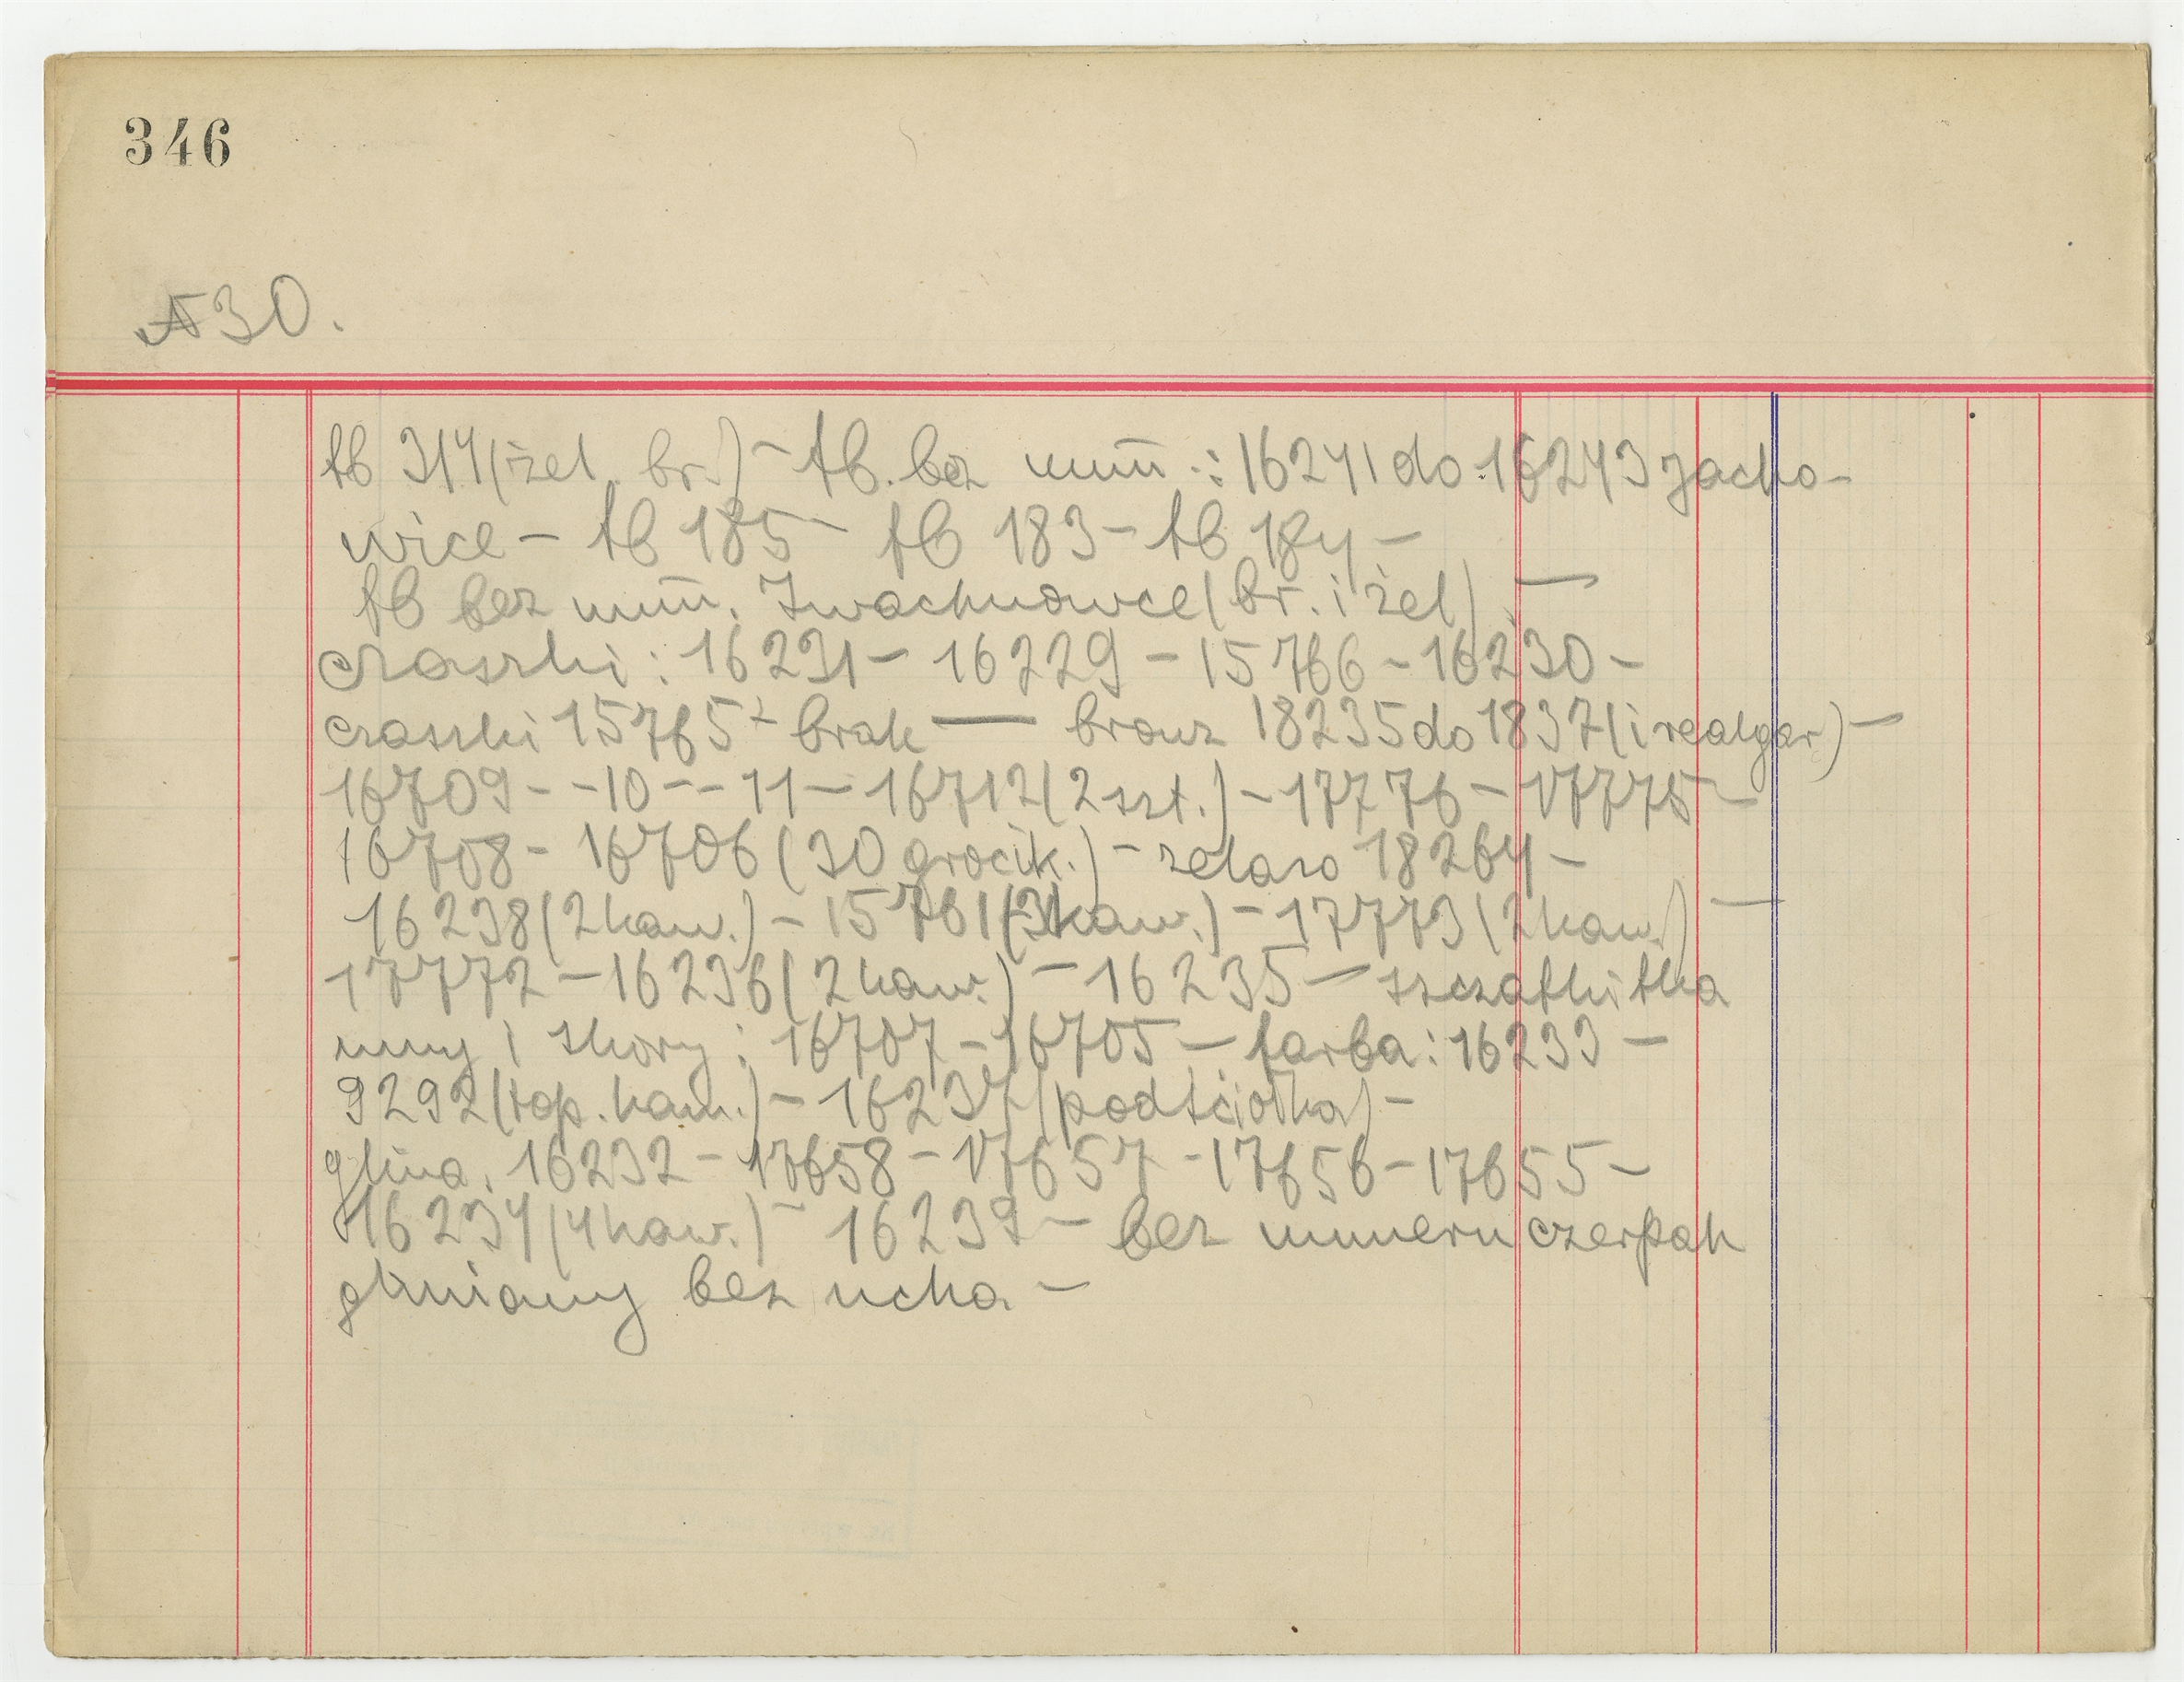 346
N 30.
tb 314 (żel. br.) – tb. bez num.: 16241 do 16243 Jacko-
wice – tb 185 – tb 183 – tb 184 –
tb bez num. Iwachnowce (br. i żel) –
czaszki: 16231 – 16229 – 15766 – 16230 –
czaszki 15765 – brak — bronz 18235 do 1837 (i realgar) –
16709 – -10 – -11 – 16712 (2 szt.) – 17776 – 17775 –
16708 – 16706 (30 grocik.) – żelazo 18264 –
16238 (2 kaw.) – 15761 (3 kaw.) – 17773 (2 kaw.) –
17772 – 16236 (2 kaw.) – 16235 – szczątki tka
niny i skóry: 16707 – 16705 – farba: 16233 –
9292 (top. kam.) – 16237 (podściółka) –
glina. 16232 – 17658 – 17657 – 17656 – 17655 –
16234 (4 kaw.) – 16239 – bez numeru czerpak
gliniany bez ucha. –